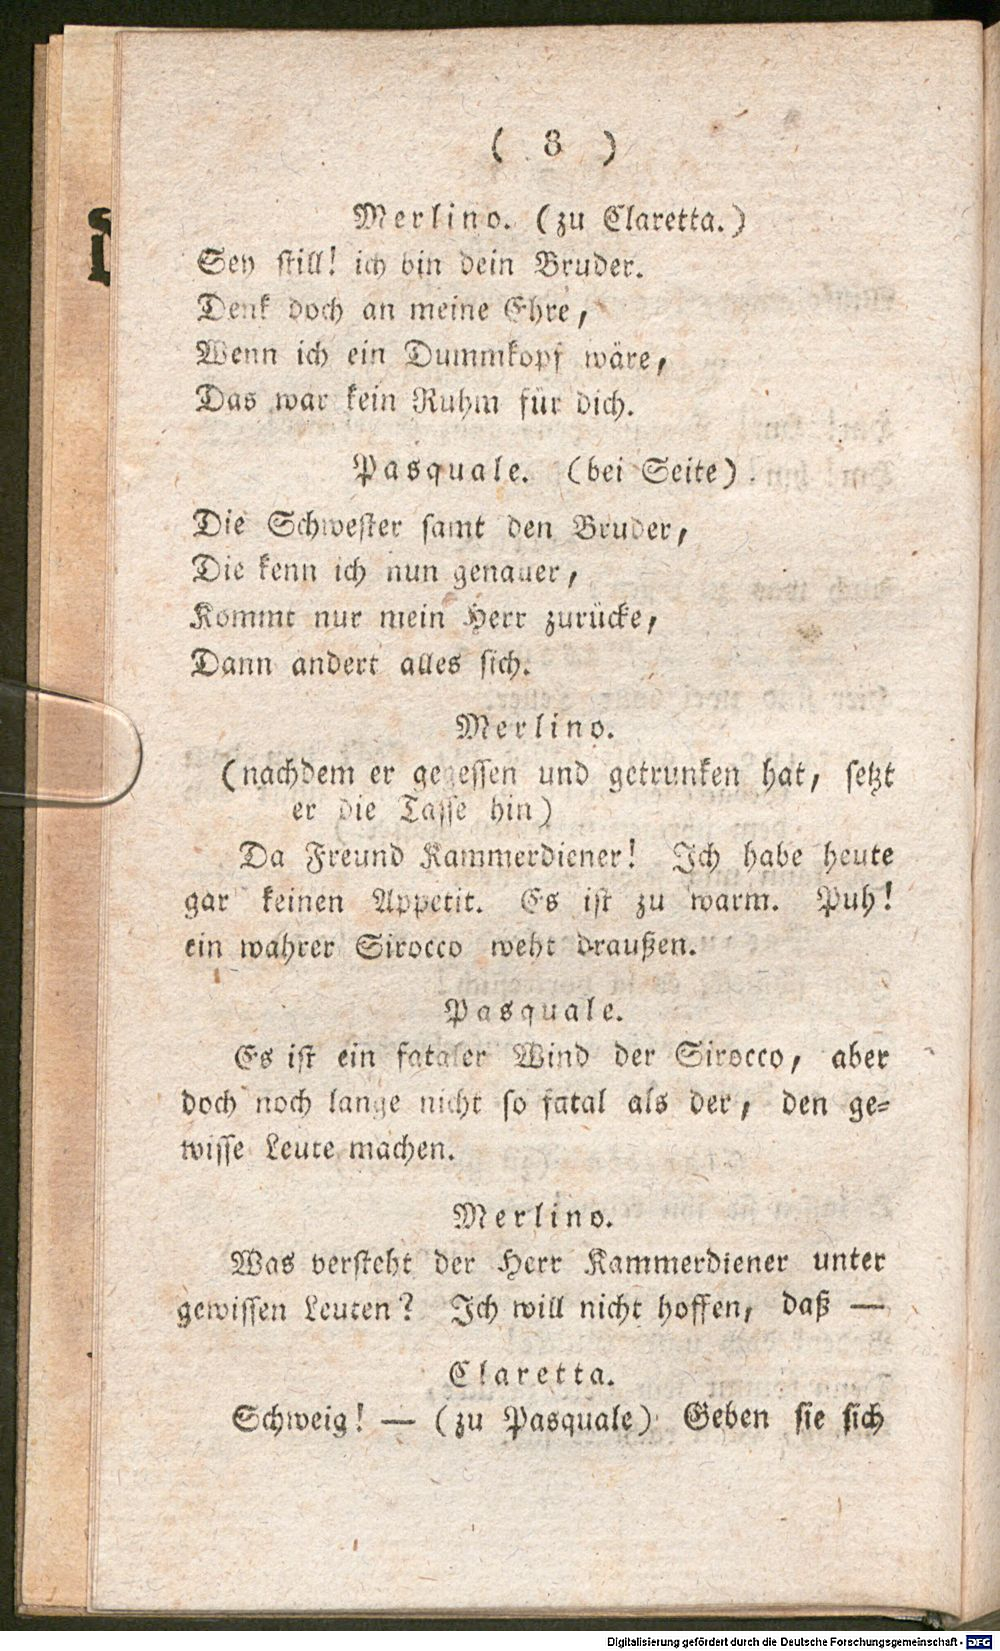 ( 8 )
Merlino. (zu Claretta.)
Sey still! ich bin dein Bruder.
Denk doch an meine Ehre,
Wenn ich ein Dummkopf wäre,
Das war kein Ruhm für dich.
Pasquale. (bei Seite)
Die Schwester samt den Bruder,
Die kenn ich nun genauer,
Kommt nur mein Herr zurücke,
Dann andert alles sich.
Merlino.
(nachdem er gegessen und getrunken hat, setzt
er die Tasse hin)
Da Freund Kammerdiener! Ich habe heute
gar keinen Appetit. Es ist zu warm. Puh!
ein wahrer Sirocco weht draußen.
Pasquale.
Es ist ein fataler Wind der Sirocco, aber
doch noch lange nicht so fatal als der, den ge-
wisse Leute machen.
Merlino.
Was versteht der Herr Kammerdiener unter
gewissen Leuten? Ich will nicht hoffen, daß —
Claretta.
Schweig! — (zu Pasquale) Geben sie sich
Digitalisierung gefördert durch die Deutsche Forschungsgemeinschaft - DFG